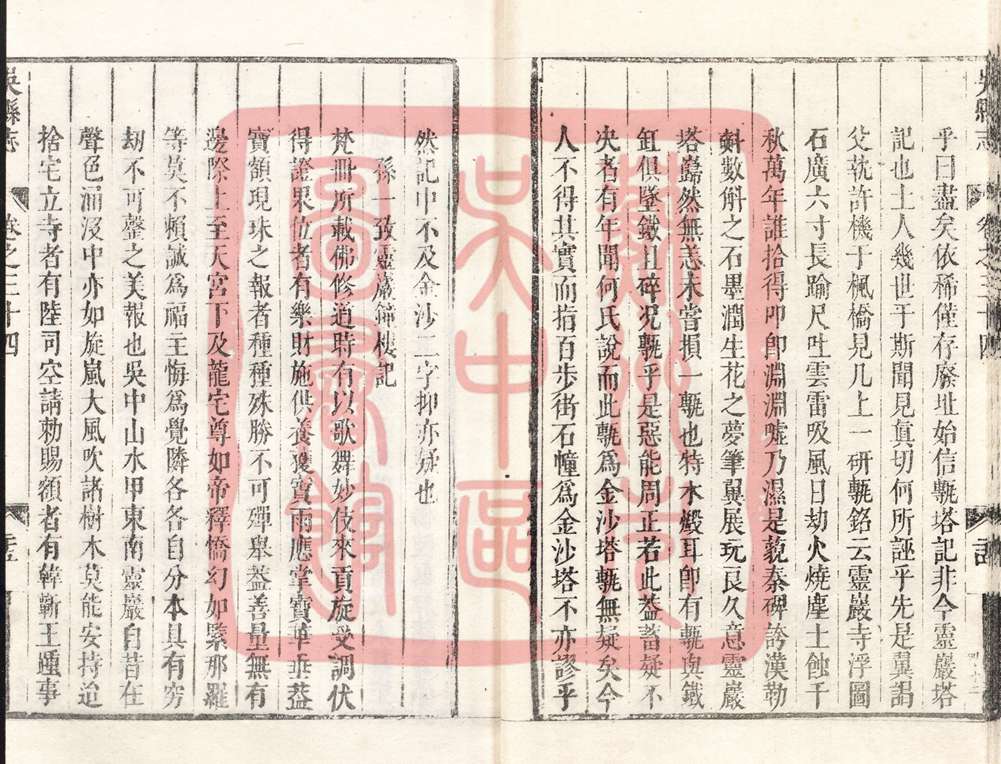 吳縣志
乎曰盡矣依稀僅存廢址始信甎塔記非今靈巖塔
記也土人幾世于斯聞見眞切何所誣乎先是冀謁
父執許機于楓橋見几上一研甎銘云靈巖寺浮圖
石廣六寸長踰尺吐雲雷吸風日劫火燒塵土蝕千
秋萬年誰拾得叩卽淵淵噓乃濕是藐秦碑誇漢勒
斛數斛之石墨潤生花之夢筆冀展玩良久意靈巖
塔巋然無恙未嘗損一甎也特木燬耳卽有甎與鐵
缸俱墜鐵且碎况甎乎是惡能周正若此葢蓄疑不
央者有年聞何氏說而此甎爲金沙塔甎無疑矣今
人不得其實而指百步街石幢爲金沙塔不亦謬乎
然記中不及金沙二字抑亦疑也
孫一致靈巖鐘樓記
梵冊所載佛修道時有以歌舞妙伎來貢旋受調伏
得證果位者有樂財施供養獲寶雨應掌寶華垂葢
寶額現珠之報者種種殊勝不可殫舉葢善量無有
邊際上至天宮下及龍宅尊如帝釋憍幻如緊那羅
等莫不頼誠爲福王悔爲覺隣各各自分本具有窮
劫不可罄之美報也吳中山水甲東南靈巖自昔在
聲色涌沒中亦如旋嵐大風吹諸樹木莫能安持迨
捨宅立寺者有陸司空請勅賜額者有韓蘄王踵事
吳縣志
卷之三十四
蘇州市
吳中區
圖書館